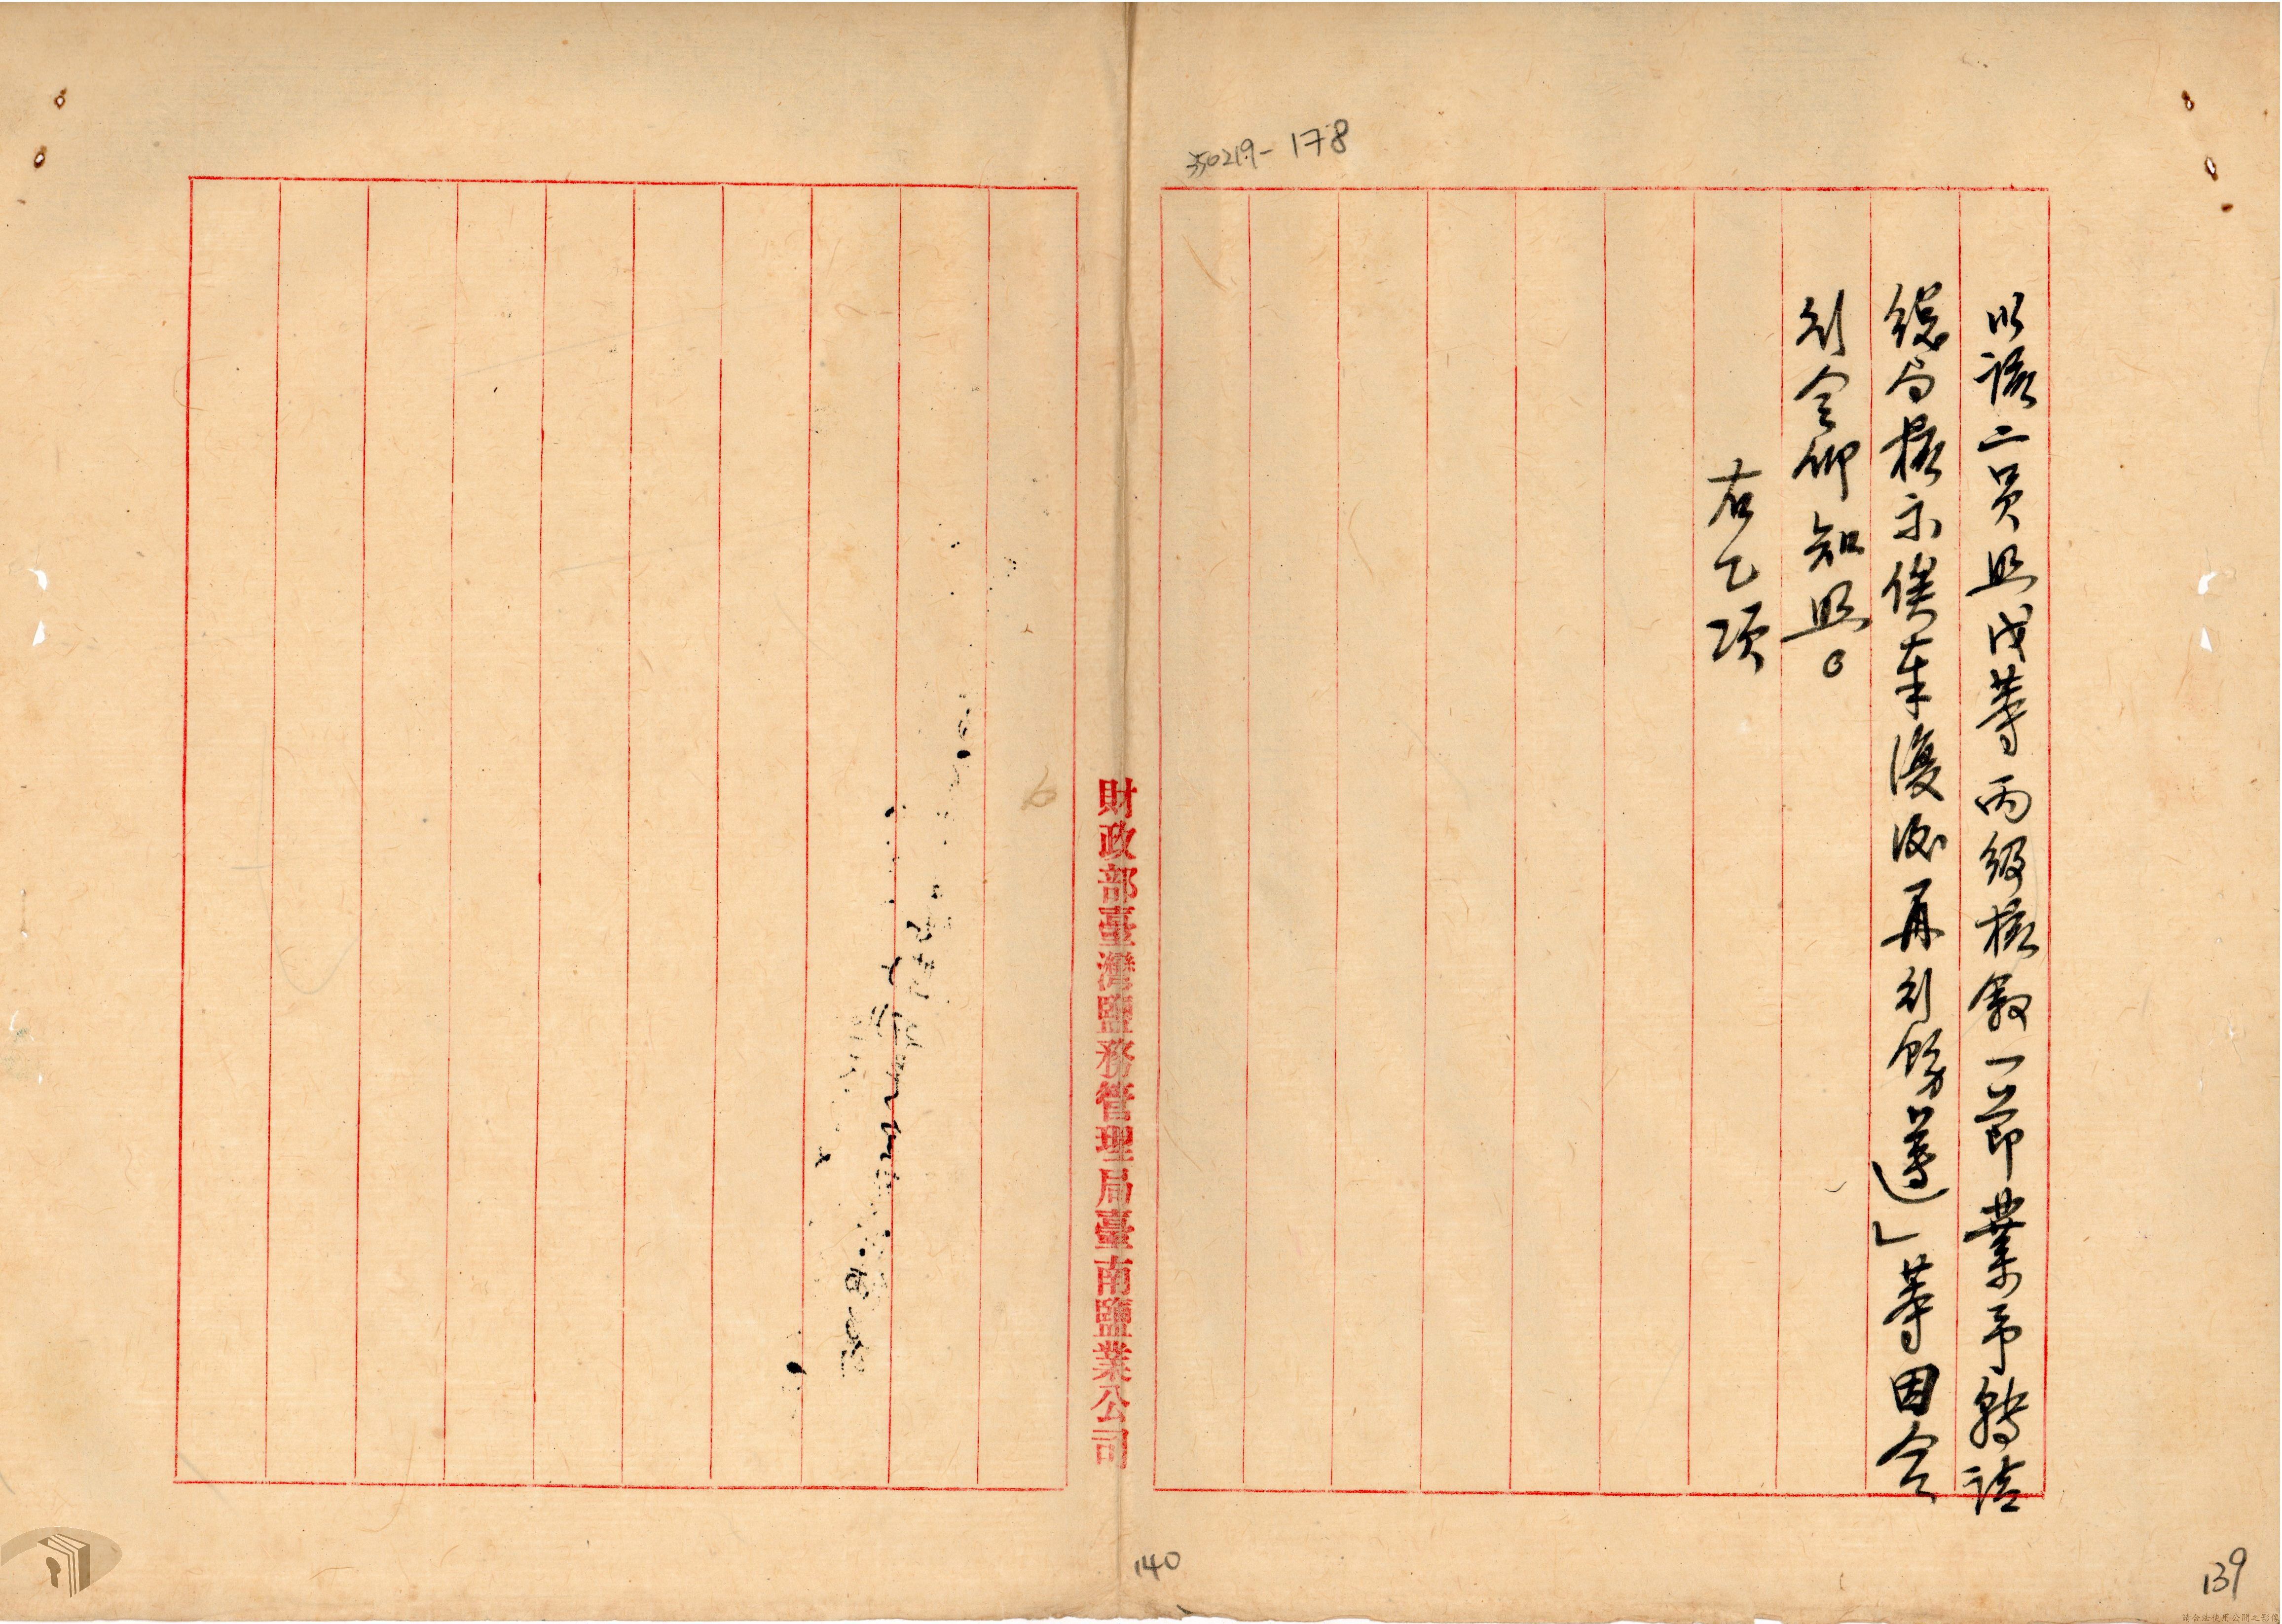 以該二員照戊等丙級核敘一節業予轉請
總局核示俟奉復後再別飭遵」等因令
別令仰知照。
右乙項
財政部臺灣鹽務管理局臺南鹽業公司
350219-178
140
139
請合法使用公開之影像